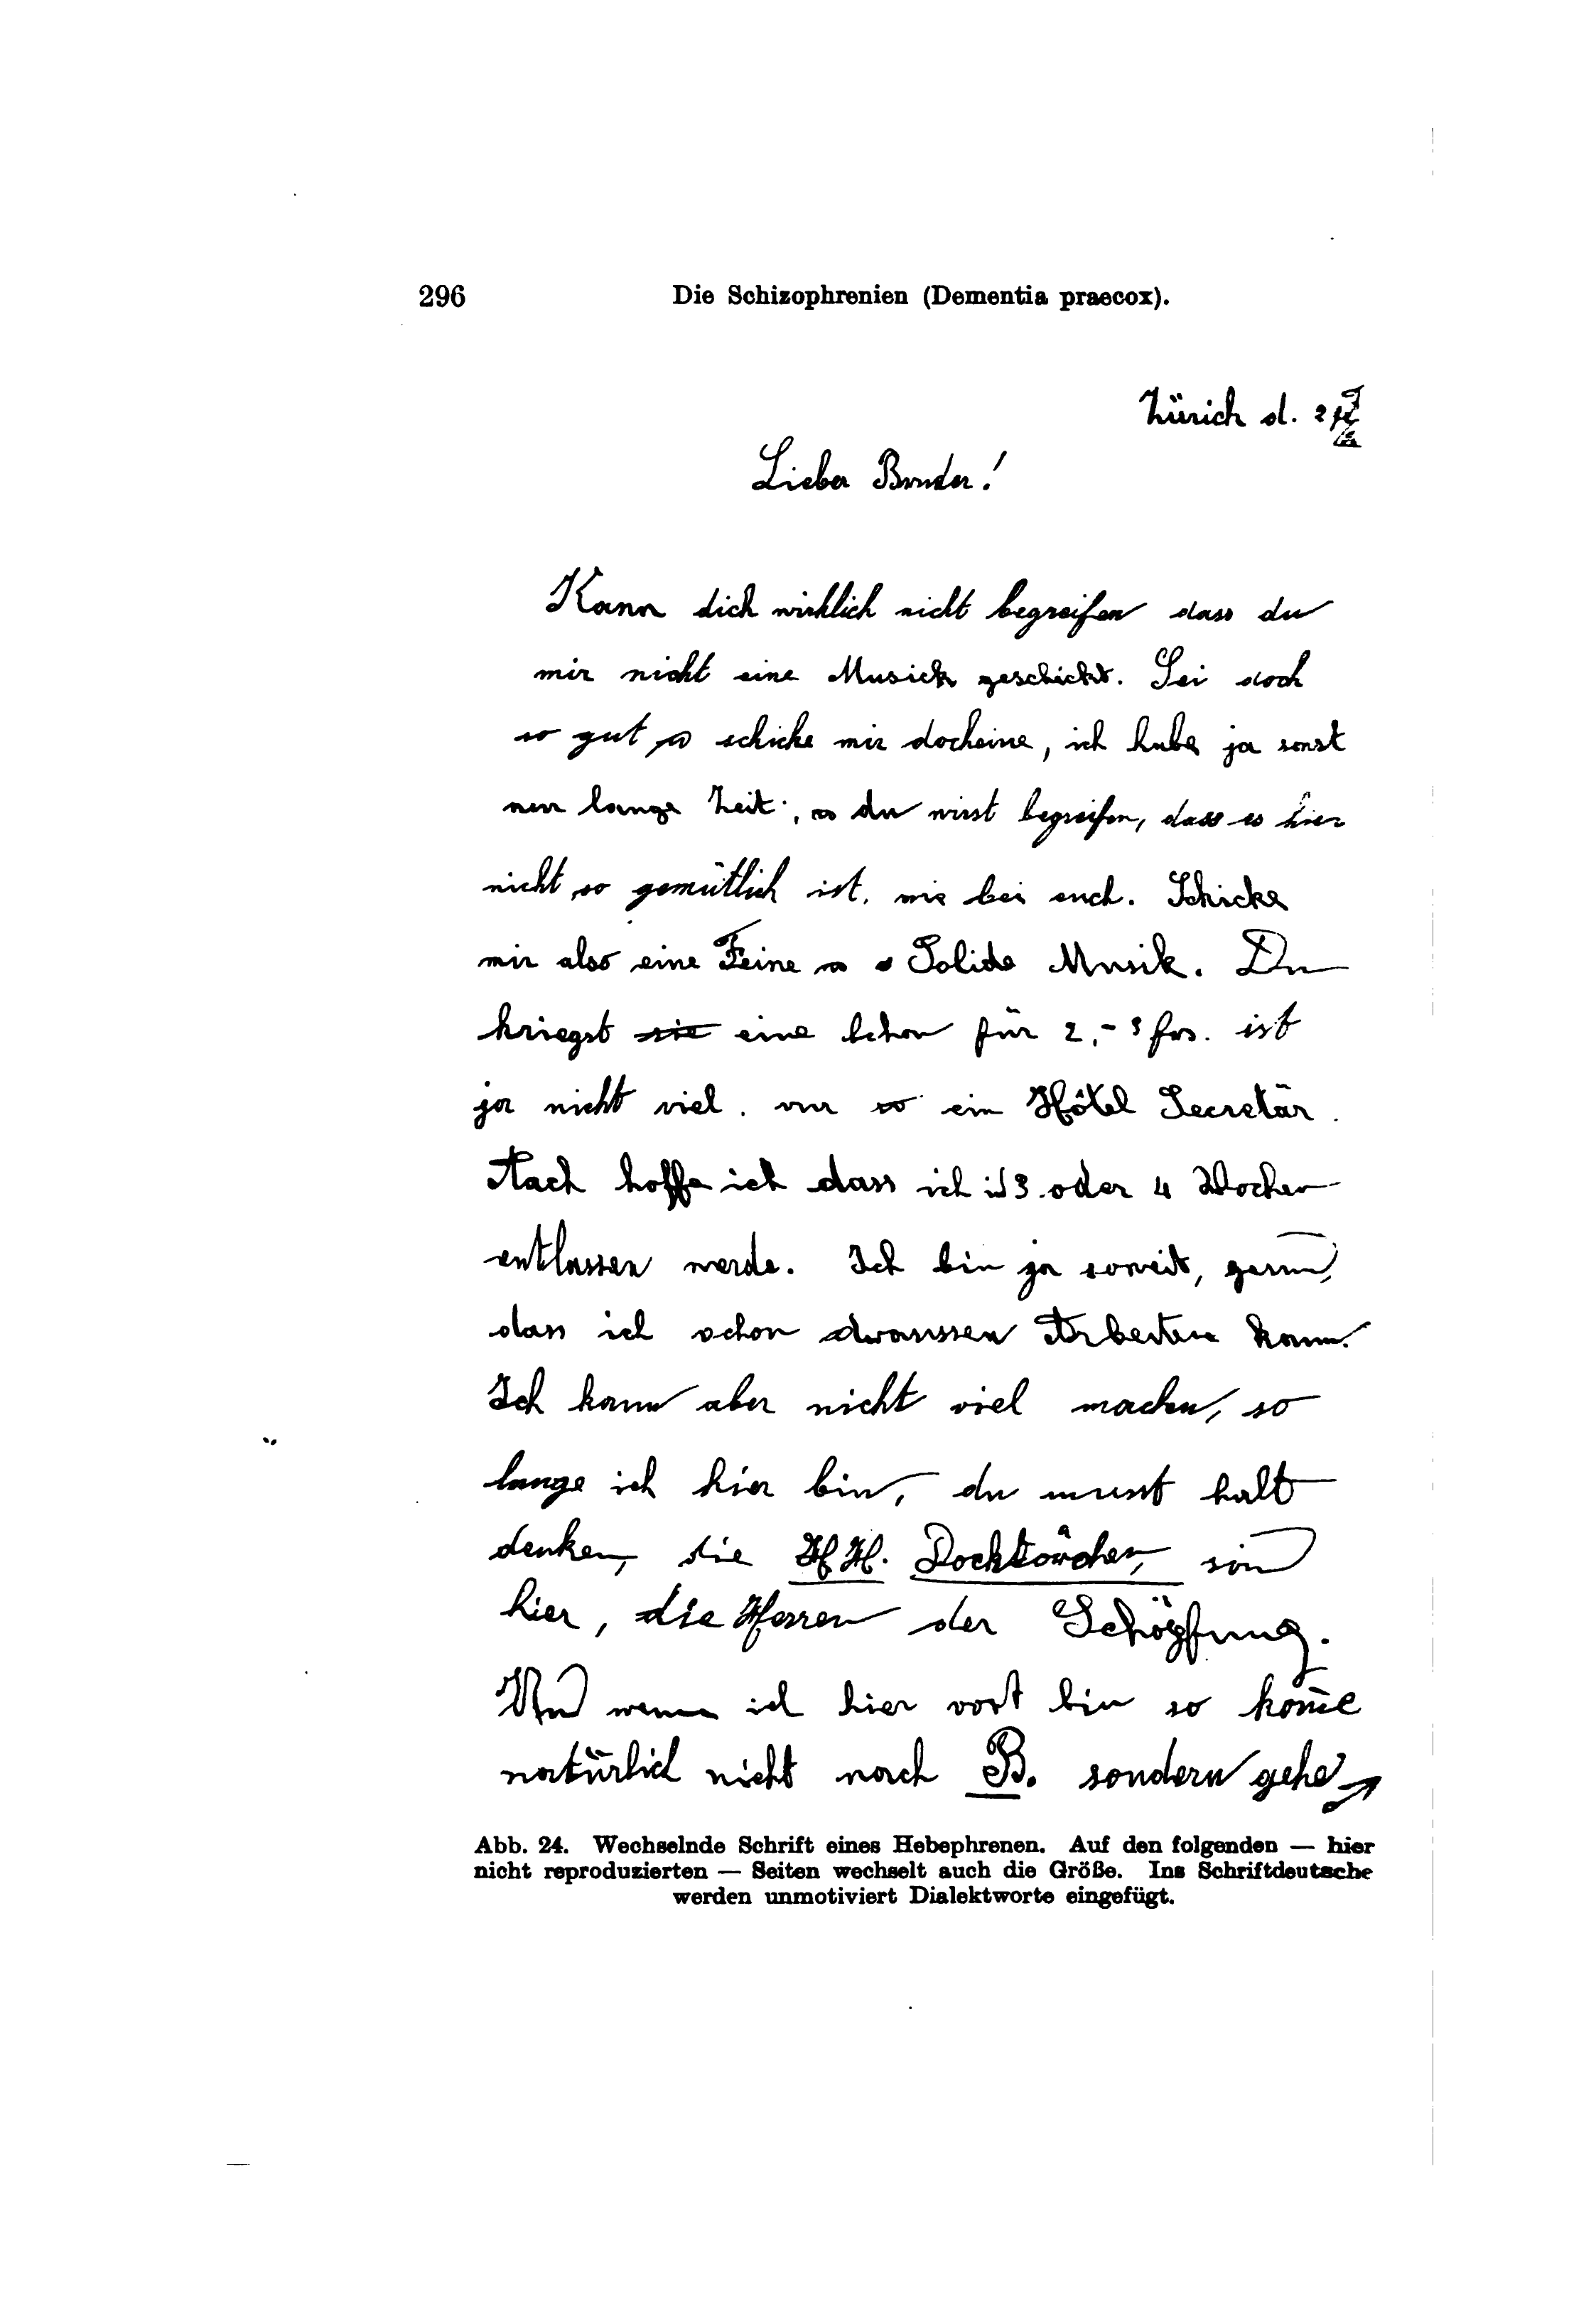 296 Die Schizophrenien (Dementia praecox).
Zürich d.
Lieber Bruder!
Kann dich wirklich nicht begreifen dass du
mir nicht eine Musick geschickt. Sei doch
so gut schicke mir docheine, ich habe ja sonst
nur lange Zeit, du wirst begreifen, dass es hier
nicht so gemütlich ist, wie bei euch. Schicke
mir also eine Feine Solide Musik. Du
kriegst sie eine schon für 2.- 3 frs. ist
ja nicht viel. nur so ein Hôtel Secretär.
Auch hoffe ich dass ich in 3 oder 4 Wochen
entlassen werde. Ich bin ja soweit,
dass ich schon draussen Arbeiten kann.
Ich kann aber nicht viel machen, so
lange ich hier bin, du musst halt
denken, die H H. sind
hier, die Herren der Schöpfung.
Und wenn ich hier vort bin so kom̄e
natürlich nicht nach B. sondern gehe
Abb. 24. Wechselnde Schrift eines Hebephrenen. Auf den folgenden — hier
nicht reproduzierten — Seiten wechselt auch die Größe. Ins Schriftdeutsche
werden unmotiviert Dialektworte eingefügt.